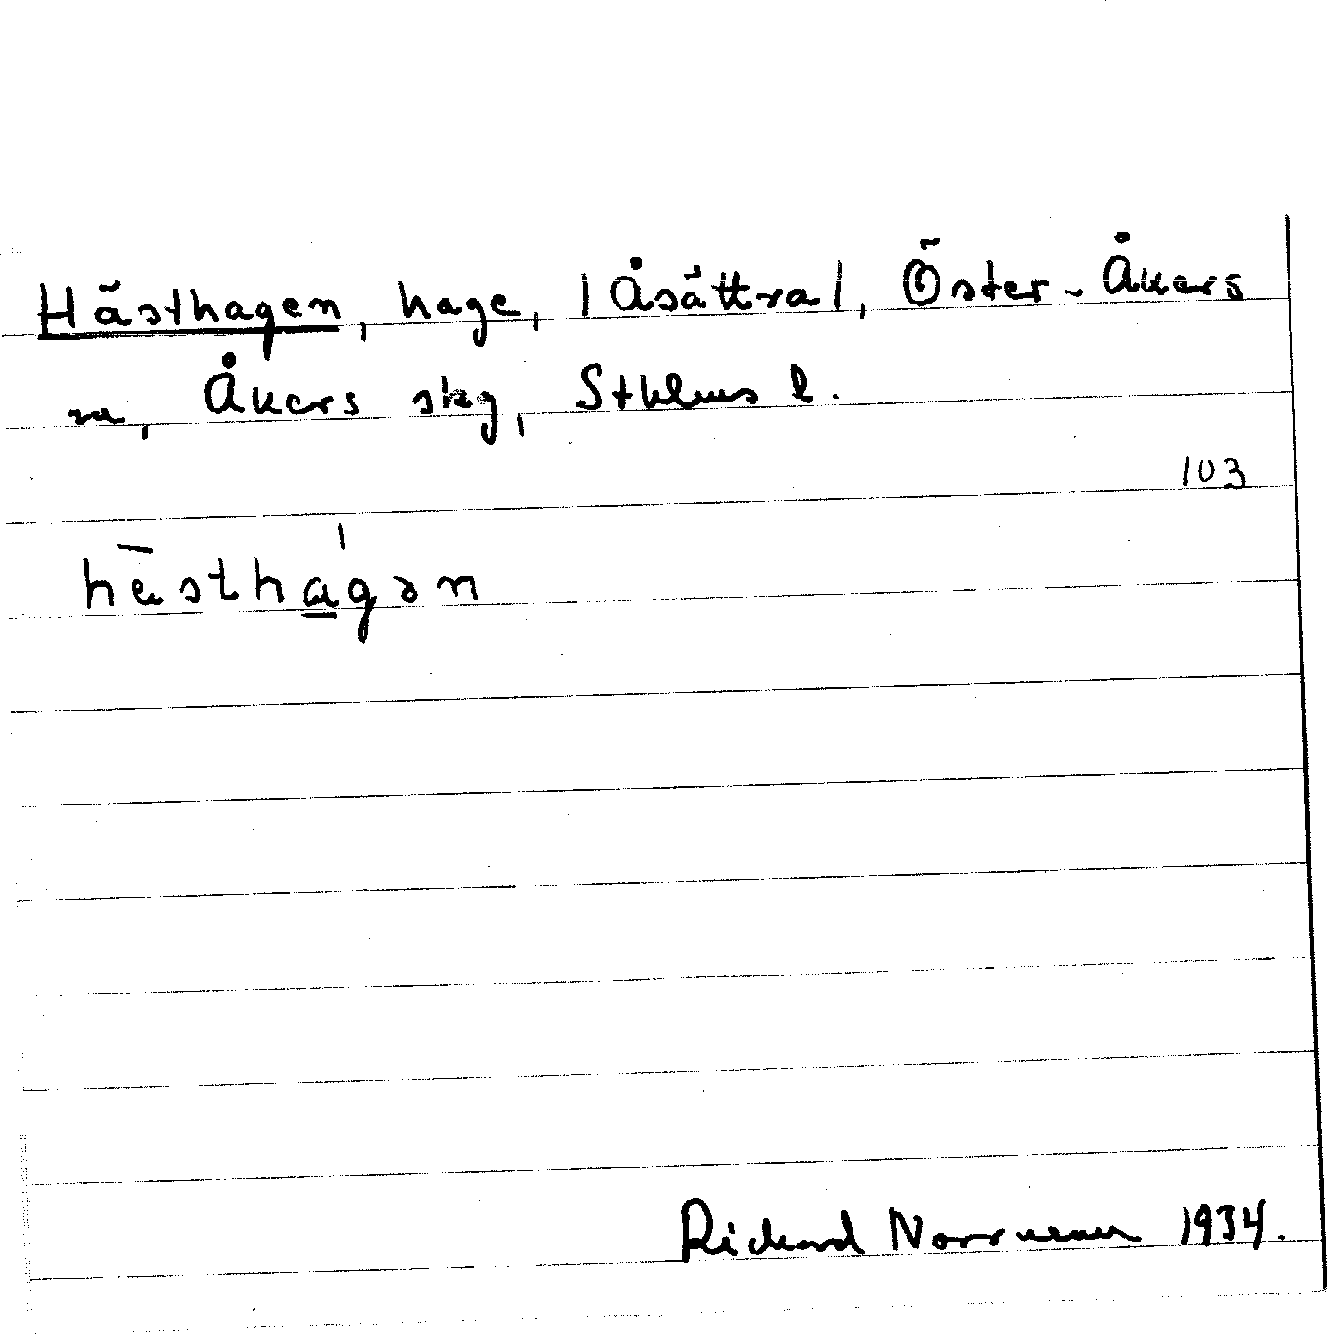 Hästhagen, hage, |Åsättra|, Öster-Åkers
sn, Åkers skg, Sthlms l.
103
hästhagən
Rickard Norrm 1934.